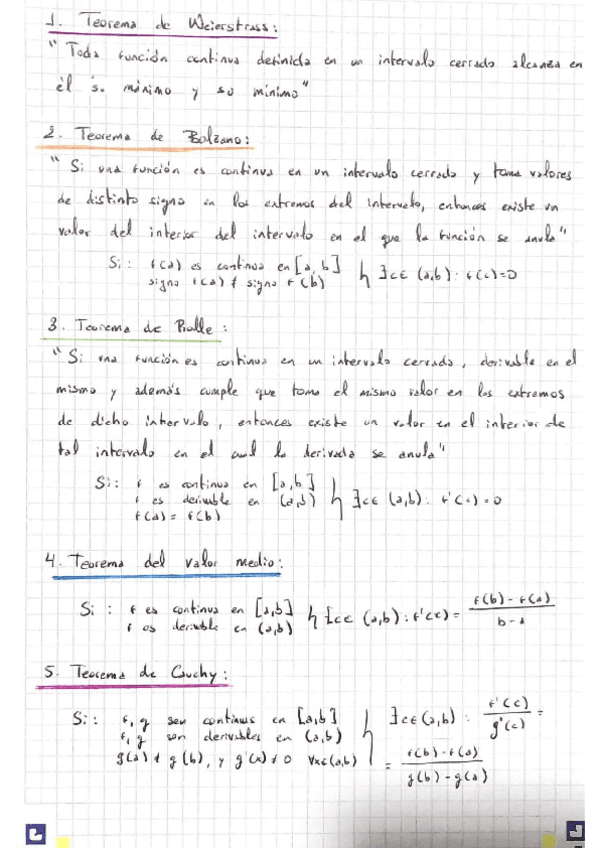 1. Teorema de Weierstrass:
"Toda función continua definida en un intervalo cerrado alcanza en
él su máximo y su mínimo"
2. Teorema de Bolzano:
"Si una función es continua en un intervalo cerrado y toma valores
de distinto signo en los extremos del intervalo, entonces existe un
valor del interior del intervalo en el que la función se anula"
Si: f(a) es continua en [a, b]
signo f(a) ≠ signo f(b) } ∃c∈ (a,b): f(c)=0
3. Teorema de Rolle:
"Si una función es continua en un intervalo cerrado, derivable en el
mismo y además cumple que toma el mismo valor en los extremos
de dicho intervalo, entonces existe un valor en el interior de
tal intervalo en el cual la derivada se anula"
Si: f es continua en [a,b]
f es derivable en (a,b) } ∃c∈ (a,b): f'(c)=0
f(a) = f(b)
4. Teorema del valor medio:
Si: f es continua en [a,b]
f es derivable en (a,b) } ∃c∈ (a,b): f'(c) = f(b) - f(a) / b - a
5. Teorema de Cauchy:
Si: f, g son continuas en [a,b]
f, g son derivables en (a,b) } ∃c∈(a,b): f'(c) / g'(c) =
g(a) ≠ g(b), y g'(x) ≠ 0 ∀x∈(a,b)
= f(b) - f(a) / g(b) - g(a)